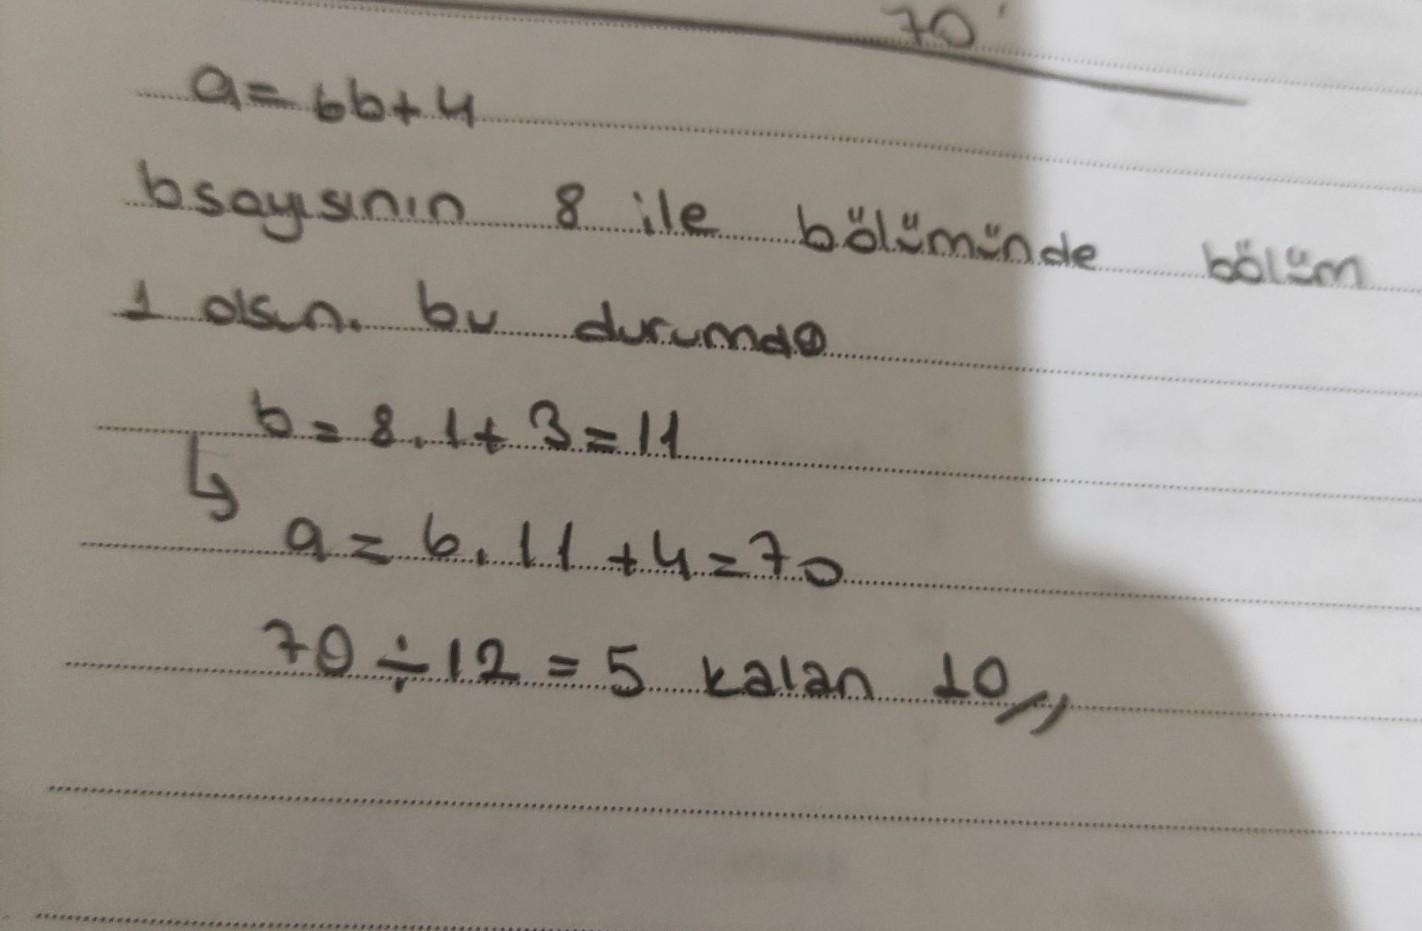 70
a = 6b + 4
b sayısının 8 ile bölümünde bölüm
1 olsun. bu durumda
b = 8.1 + 3 = 11
↳ a = 6.11 + 4 = 70
70 ÷ 12 = 5 kalan 10